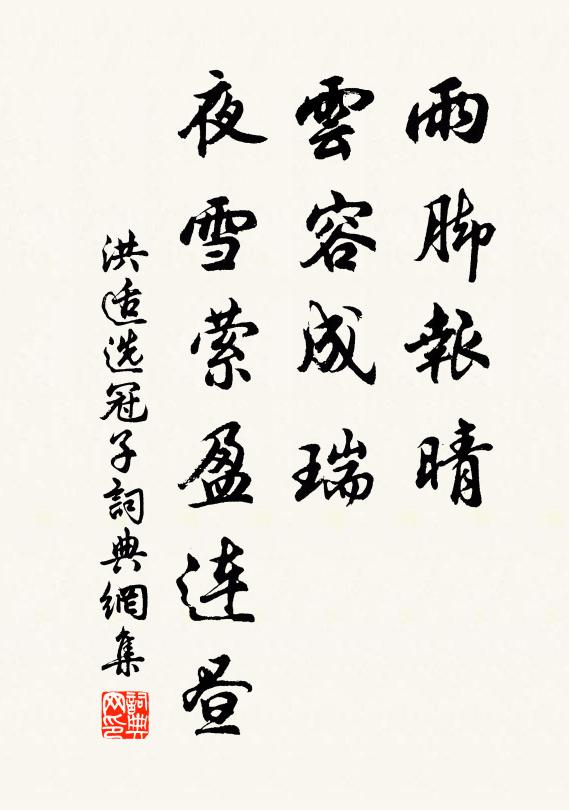 雨脚報晴
雲容成瑞
夜雪萦盈連昼
洪适选冠子詞典網集
詞典网印